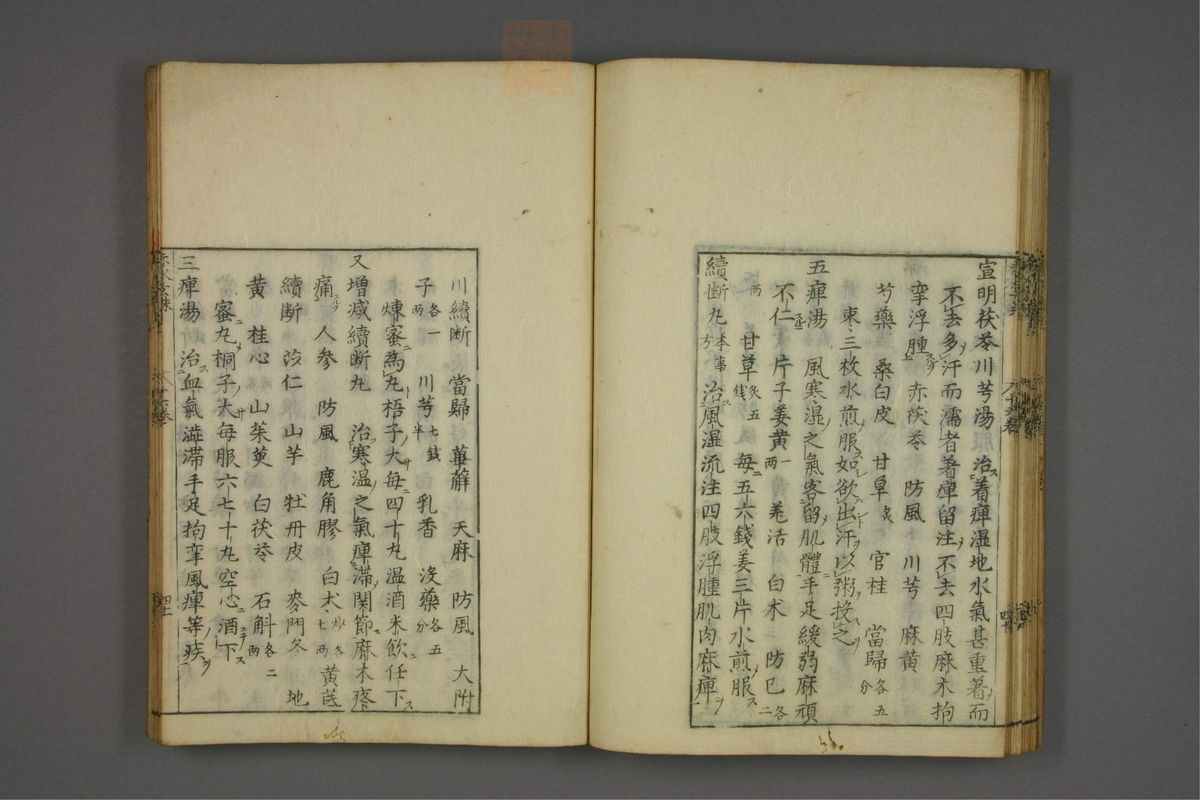 宣明茯苓川芎湯治着痺濕地水氣甚重著而
不去多汗而濡者著痺留注不去四肢麻木拘
攣浮腫　赤茯苓　防風　川芎　麻黄
芍藥　桑白皮　甘草炙　官桂　當歸各五分
棗三枚水煎服如欲出汗以粥投之
五痺湯　風寒湿之氣客留肌體手足緩弱麻頑
不仁　片子姜黄一两　羌活　白术　防已各二两
甘草炙五錢　每五六錢姜三片水煎服
續斷丸本事方　治風湿流注四肢浮腫肌肉麻痺
川續断　當歸　萆薢　天麻　防風　大附
子各一两　川芎七錢半　乳香　没藥各五分
煉蜜為丸梧子大每四十丸温酒米飲任下
又増减續断丸　治寒温之氣痺滞関節麻木疼
痛　人參　防風　鹿角膠　白术各七两　黄芪
續断　苡仁　山芋　牡丹皮　麥門冬　地
黄　桂心　山茱萸　白茯苓　石斛各二两
蜜丸桐子大每服六七十丸空心酒下
三痺湯　治血氣澁滞手足拘攣風痺等疾